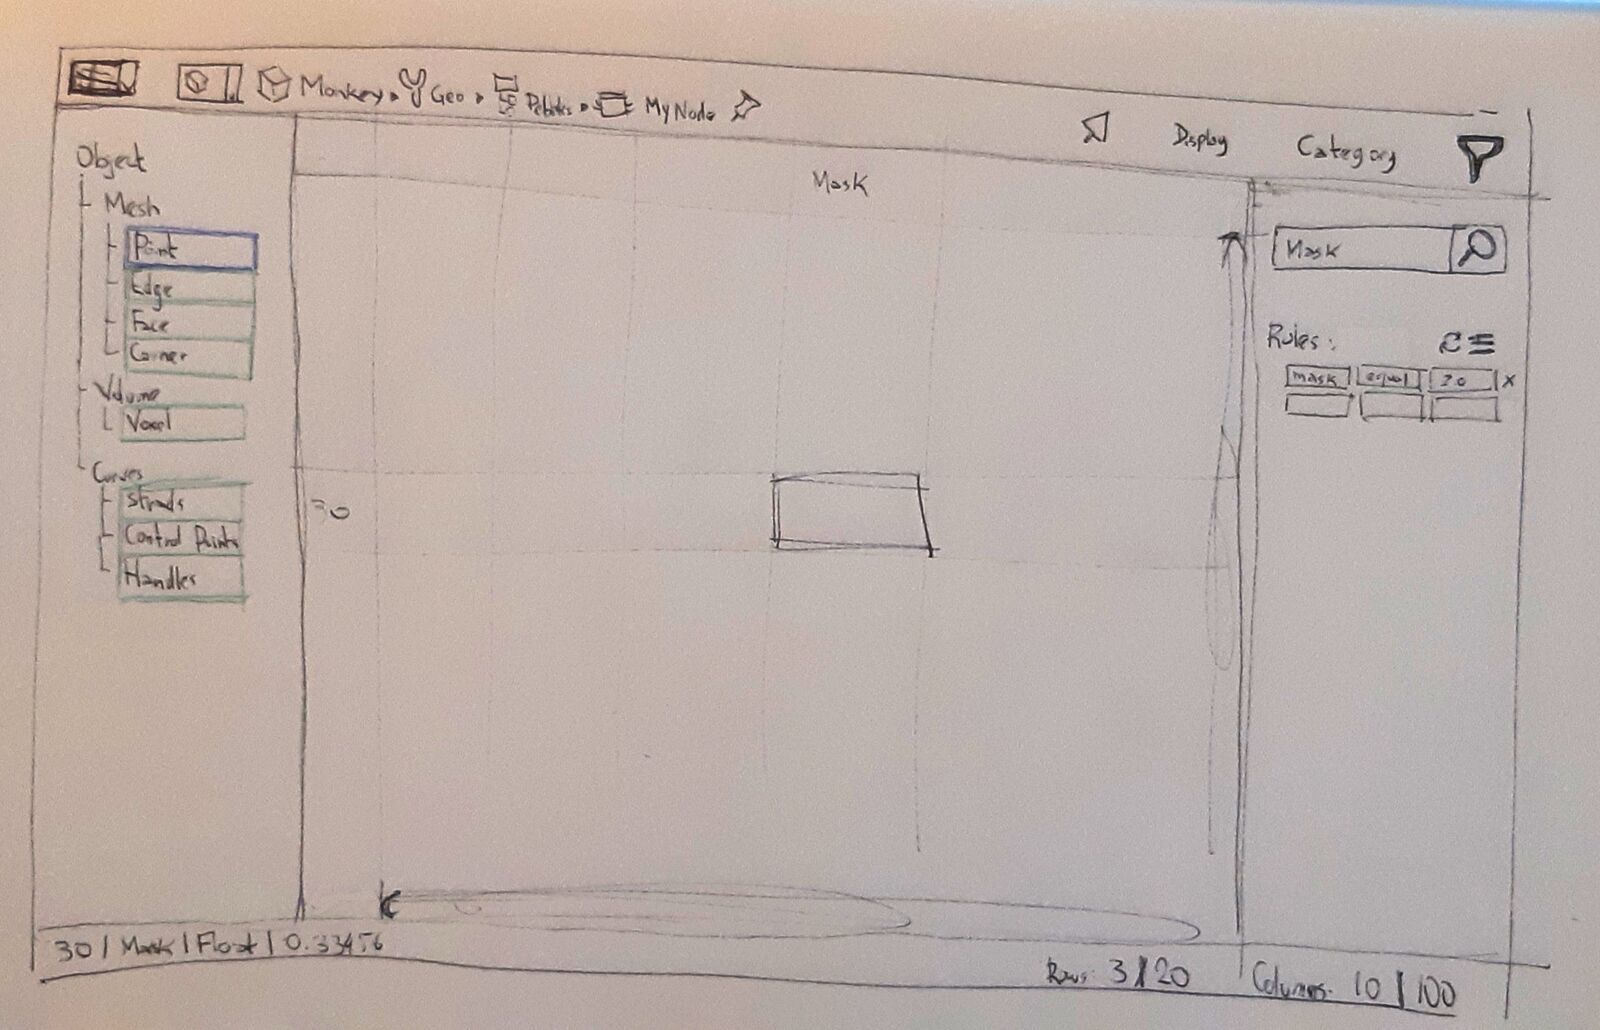 Monkey Geo MyNode
Display Category
Object
Mesh
Point
Edge
Face
Corner
Volume
Voxel
Curves
Strands
Control Points
Handles
Mask
30
Mask
Rules:
mask equal 30 x
30 | Mask | Float | 0.33456
Rows: 3/20 Columns: 10/100